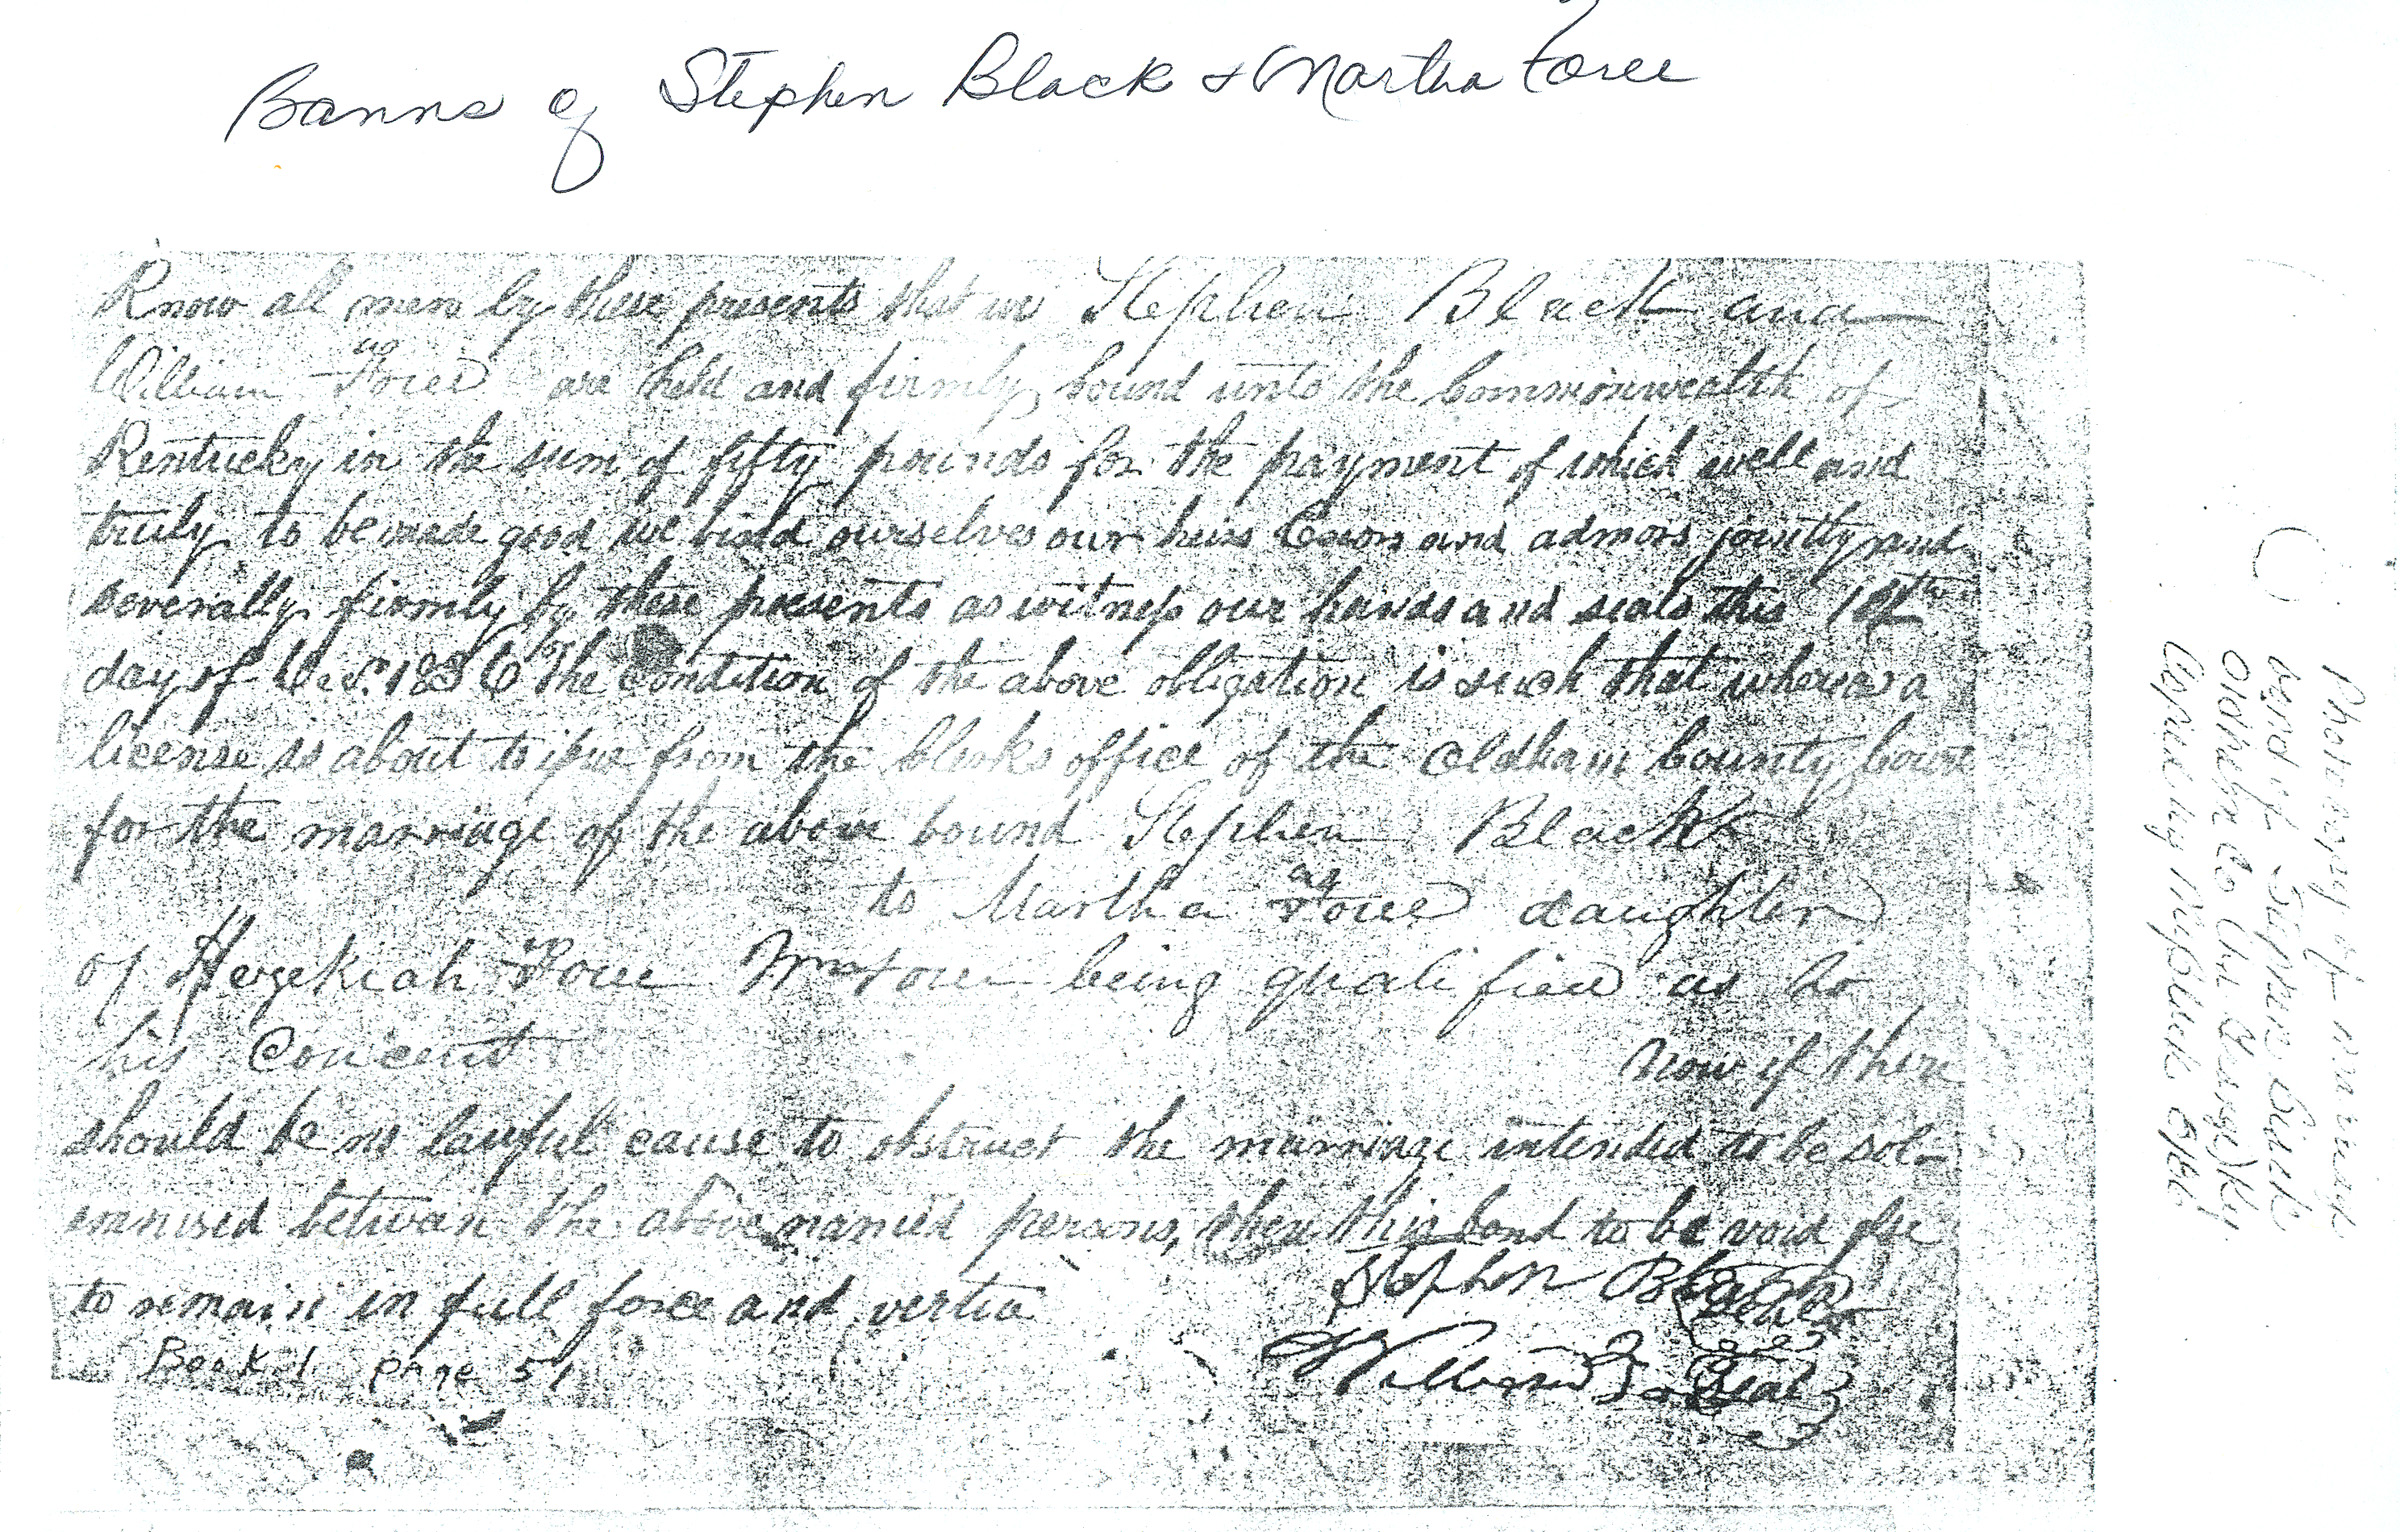 Banns of Stephen Black & Martha Foree
Know al men by these presents that we Stephen Black and
William Foree are held and firmly bound unto the Commonwealth of
Kentucky in the sum of fifty pounds for the payment of which well and
truly to be made good we bind ourselves our heirs Exors and admors jointly and
severally firmly by these presents as witness our hands and seals this
day of 1836 The Condition of the above obligation is such that whereas a
license is about to issue from the Clerks office of the Oldham County Court
for the marriage of the above bound Stephen Black
to Martha Foree daughter
of Hezekiah Foree Wm Foree being qualified as to
his Concent
now if there
should be no lawful cause to obstruct the marriage intended to be sol-
emnised betwean the above named persons, then this bond to be void else
to remain in full force and vertue
Stephen Black
Seal
William
Seal
Book 1 page 51
Photocopy of marriage
bond of Stephen Black
Oldham Co Ky
Copied by